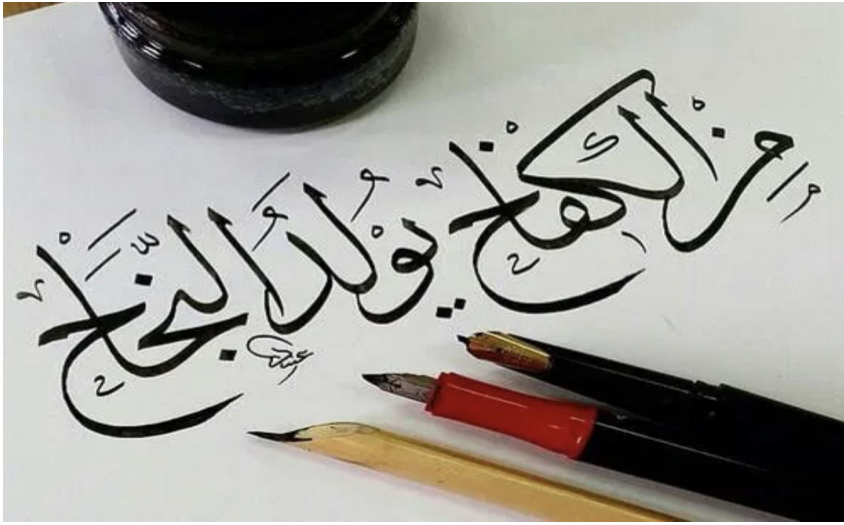 من الكفاح يُولَدُ النَّجَاح